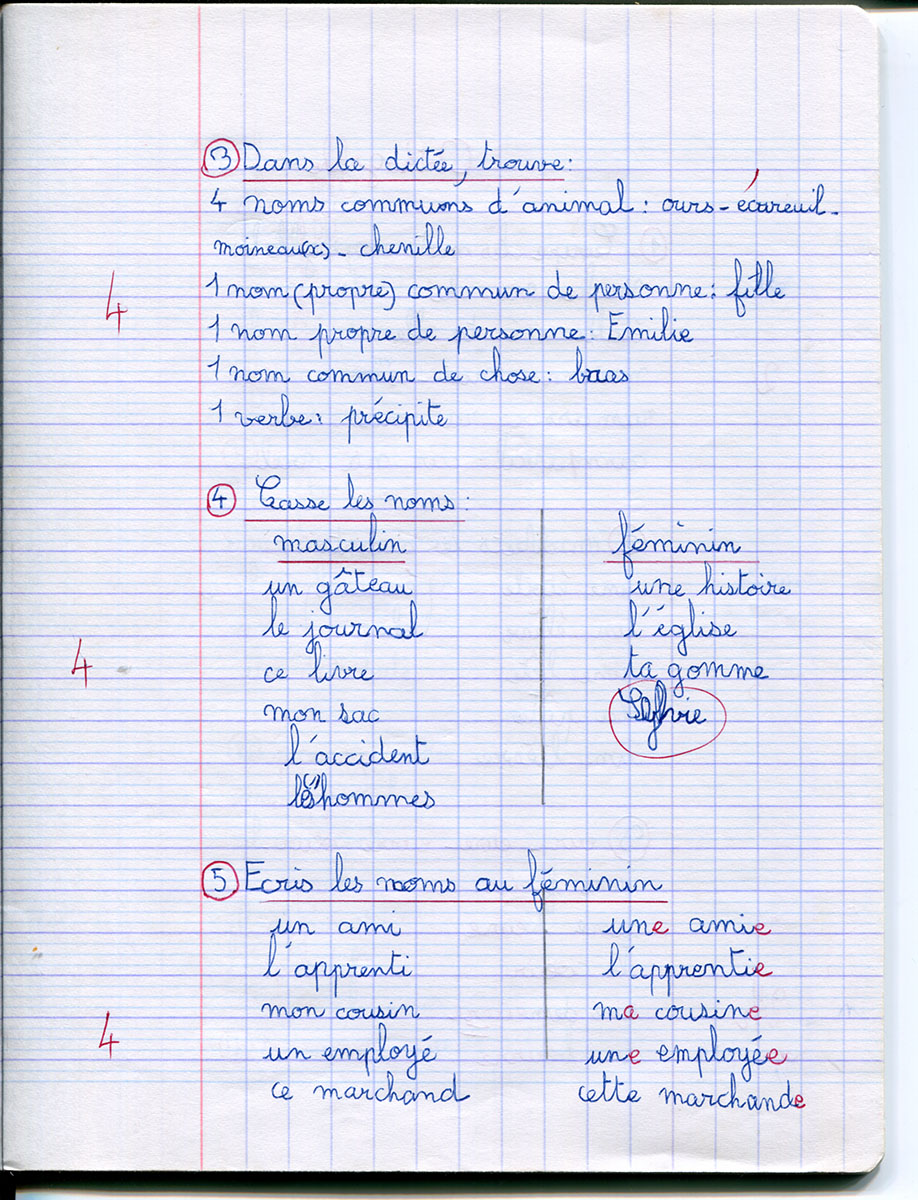 ③ Dans la dictée, trouve:
4 noms communs d'animal: ours - écureuil -
moineau(x) - chenille
4
1 nom (propre) commun de personne: fille
1 nom propre de personne: Emilie
1 nom commun de chose: bras
1 verbe: précipite
④ Classe les noms:
masculin féminin
un gâteau une histoire
le journal l'église
4 ce livre ta gomme
mon sac Sylvie
l'accident
les hommes
⑤ Ecris les noms au féminin
un ami une amie
l'apprenti l'apprentie
mon cousin ma cousine
4 un employé une employée
ce marchand cette marchande